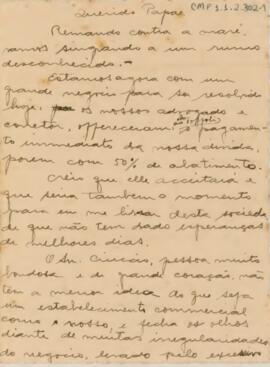 CMP 1.1.2.302-1
Querido Papae
Remando contra a maré,
vamos singrando a um rumo
desconhecido.-
Estamos agora com um
grande negocio para ser resolvido
hoje, os nossos advogado e
corretor, offereceram o pagamen
to immediato da nossa divida,
porem com 50% de abatimento.
Creio que elle acceitará e
que seria tambem o momento
para eu me livrar desta socieda
de que não tem dado esperanças
de melhores dias.
O Snr. pessoa muito
bondosa e de grande coração, não
tem a menor ideia do que seja
um estabelecimento commercial
como o nosso, e fecha os olhos
diante de muitas irregularidades
do negocio, levado pelo